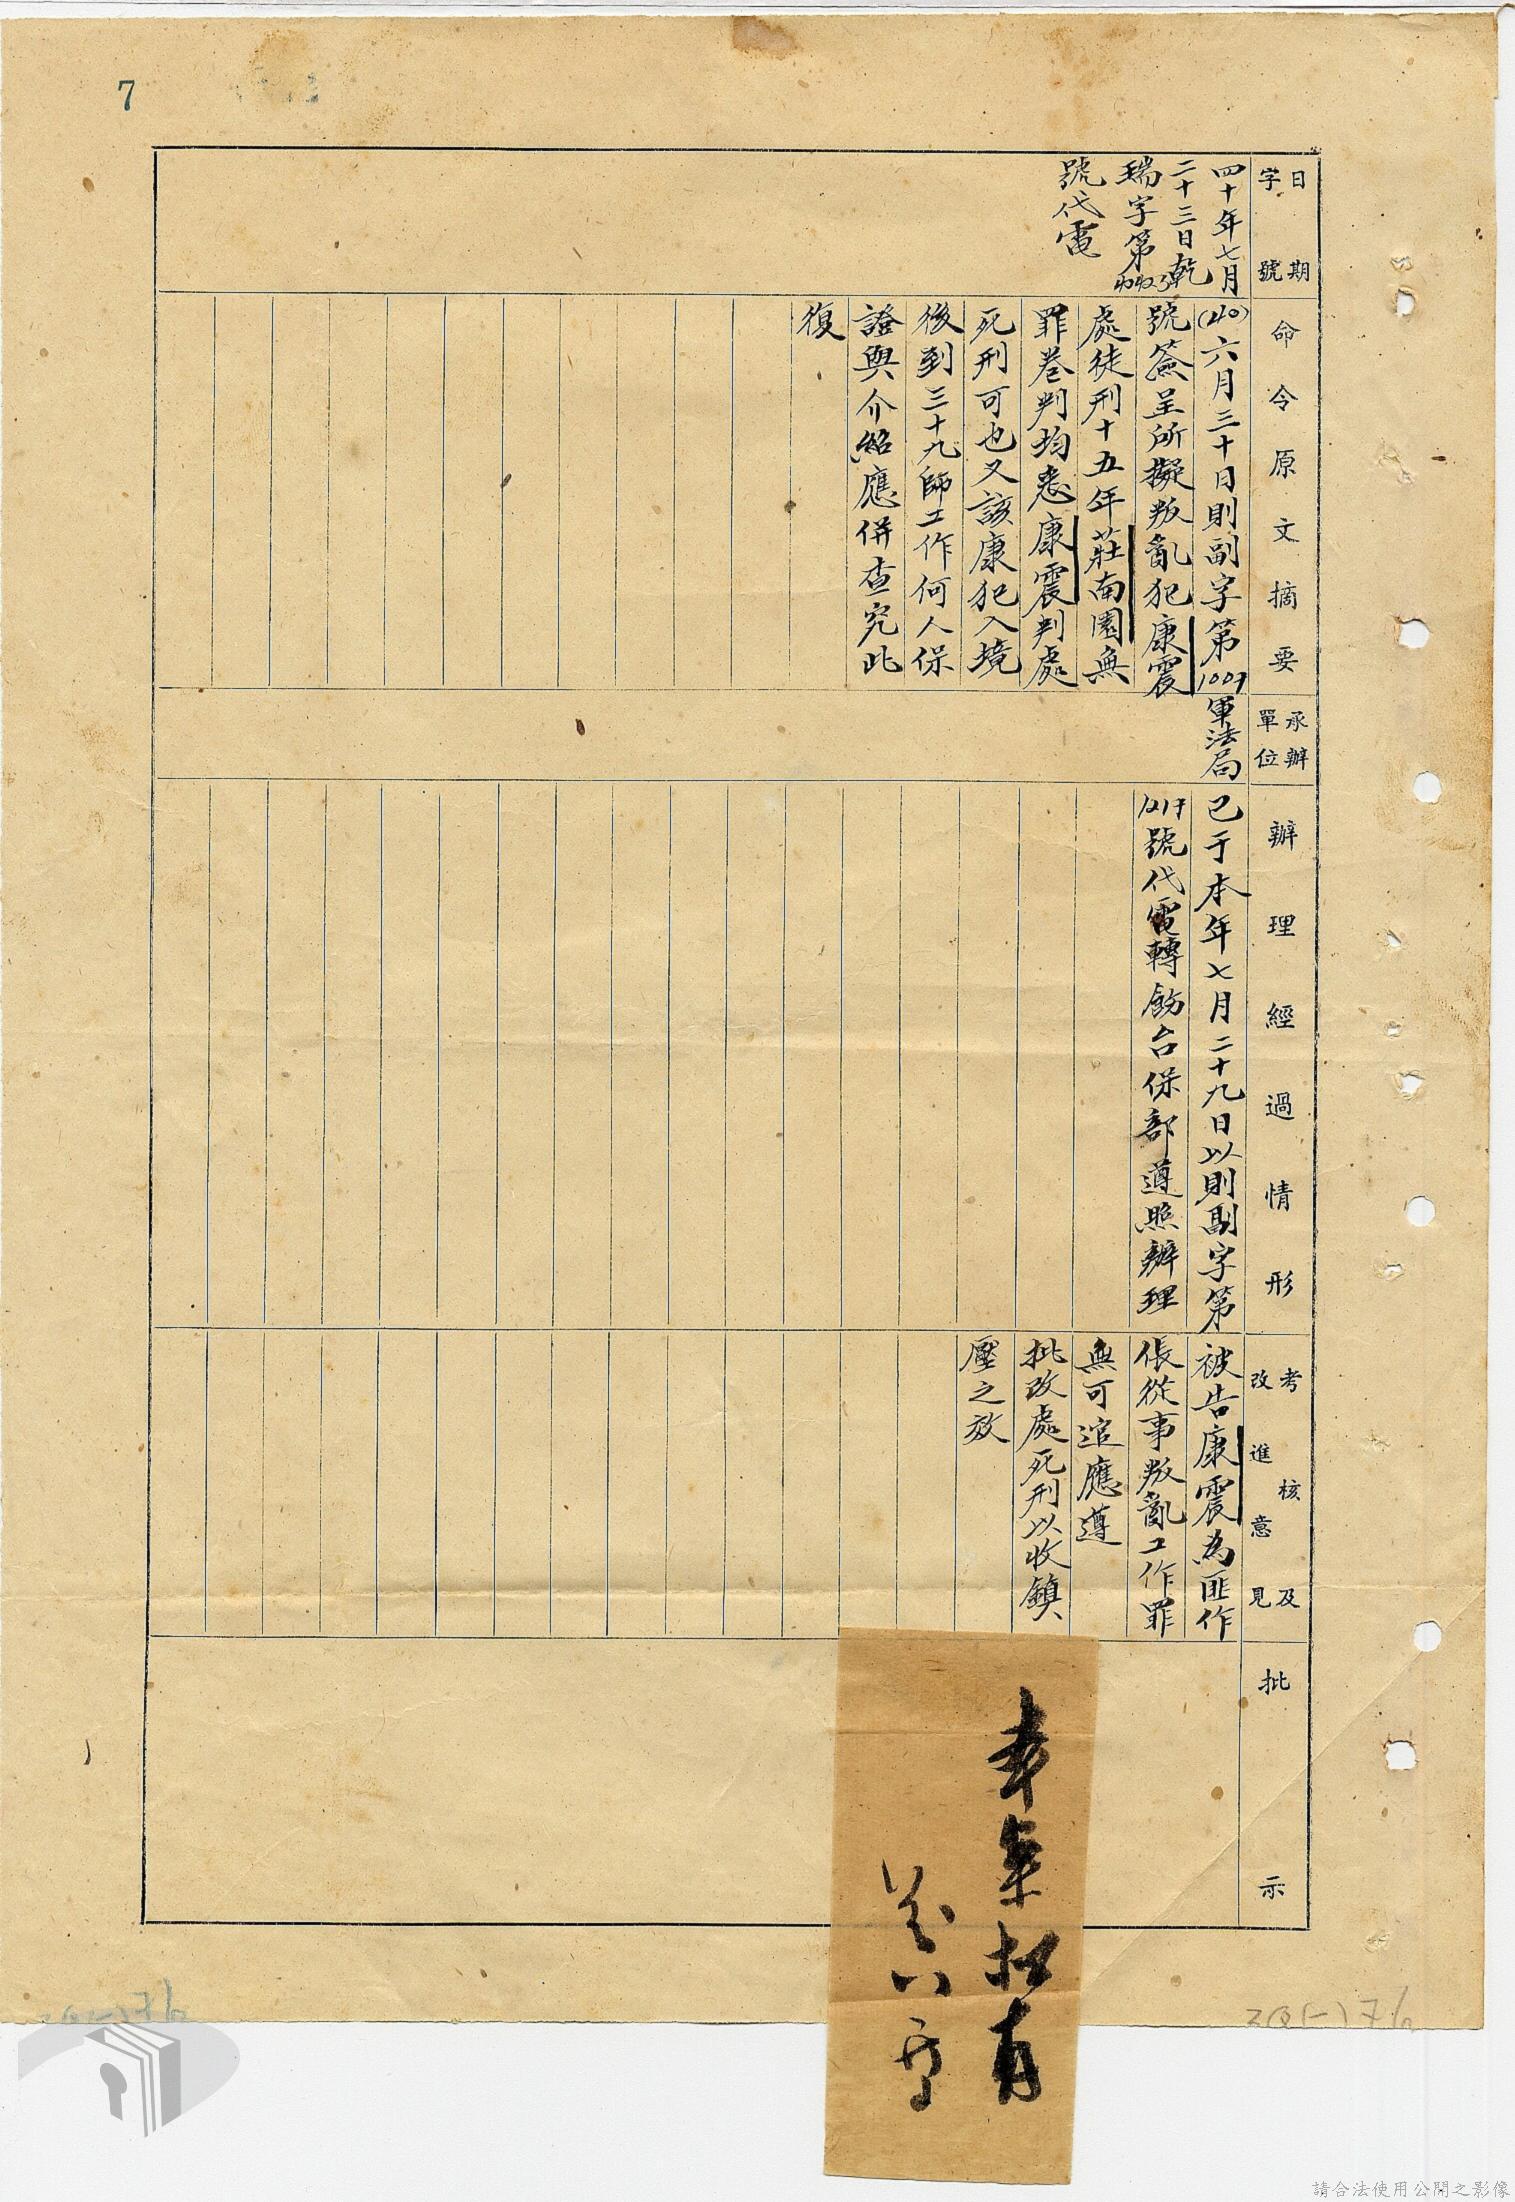 7
日期
字號
四十年七月
二十三日乾
瑞字第
號代電
命令原文摘要
(40)六月三十日則副字第1009
號簽呈所擬叛亂犯康震
處徒刑十五年莊南園無
罪卷判均悉康震判處
死刑可也又該康犯入境
後到三十九師工作何人保
證與介紹應併查究此
復
承辦
單位
軍法局
辦理經過情形
已于本年七月二十九日以則副字第
號代電轉飭台保部遵照辦理
考核及
改進意見
被告康震為匪作
倀從事叛亂工作罪
無可逭應遵
批改處死刑以收鎮
壓之效
批示
請合法使用公開之影像